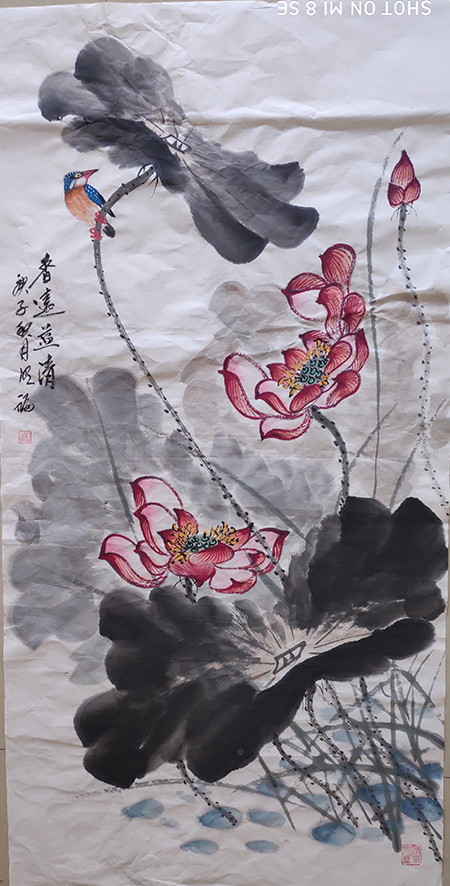 香远益清
庚子秋月
SHOT ON MI 8 SE